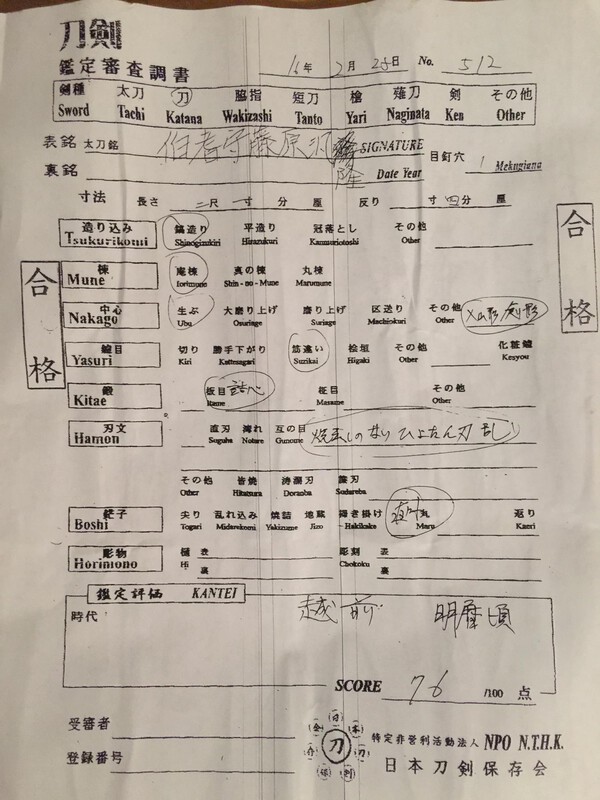 刀剣
鑑定審査調書
16年 2月 25日 No. 512
剣種 太刀 刀 脇指 短刀 槍 薙刀 剣 その他
Sword Tachi Katana Wakizashi Tanto Yari Naginata Ken Other
表銘 太刀銘 伯耆守藤原汎隆 SIGNATURE
目釘穴 1 Mekugiana
裏銘 Date Year
寸法 長さ 二尺 一寸 分 厘 反り 寸 四分 厘
造り込み 鎬造り 平造り 冠落とし その他
Tsukurikomi Shinogizukuri Hirazukuri Kanmuriotoshi Other
合格
合格
棟 庵棟 真の棟 丸棟
Mune Iorimune Shin-no-Mune Marumune
中心 生ぶ 大磨り上げ 磨り上げ 区送り その他
Nakago Ubu Osuriage Suriage Machiokuri Other
鑢目 切り 勝手下がり 筋違い 桧垣 その他 化粧鑢
Yasuri Kiri Kattesagari Sujikai Higaki Other Kesyou
鍛 板目 詰心 柾目 その他
Kitae Itame Masame Other
刃文 直刃 湾れ 互の目 焼出しのないひょたん刃 乱
Hamon Suguha Notare Gunome
その他 皆焼 涛瀾刃 簾刃
Other Hitatsura Doranba Sudareba
鋩子 尖り 乱れ込み 焼詰 地蔵 掃き掛け 丸 返り
Boshi Togari Midarekomi Yakizume Jizo Hakikake Maru Kaeri
彫物 樋 表 彫刻 表
Horimono Hi 裏 Chokoku 裏
鑑定評価 KANTEI
時代 越前 明暦頃
SCORE 76 /100 点
受審者
登録番号
刀
特定非営利活動法人 NPO N.T.H.K.
日本刀剣保存会